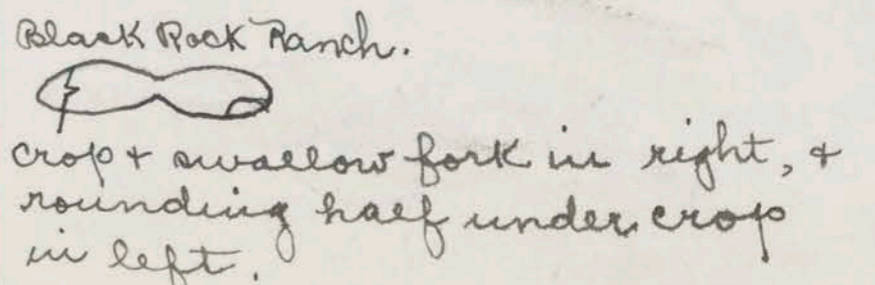 Black Rock Ranch.
crop + swallow fork in right, +
rounding half under crop
in left.